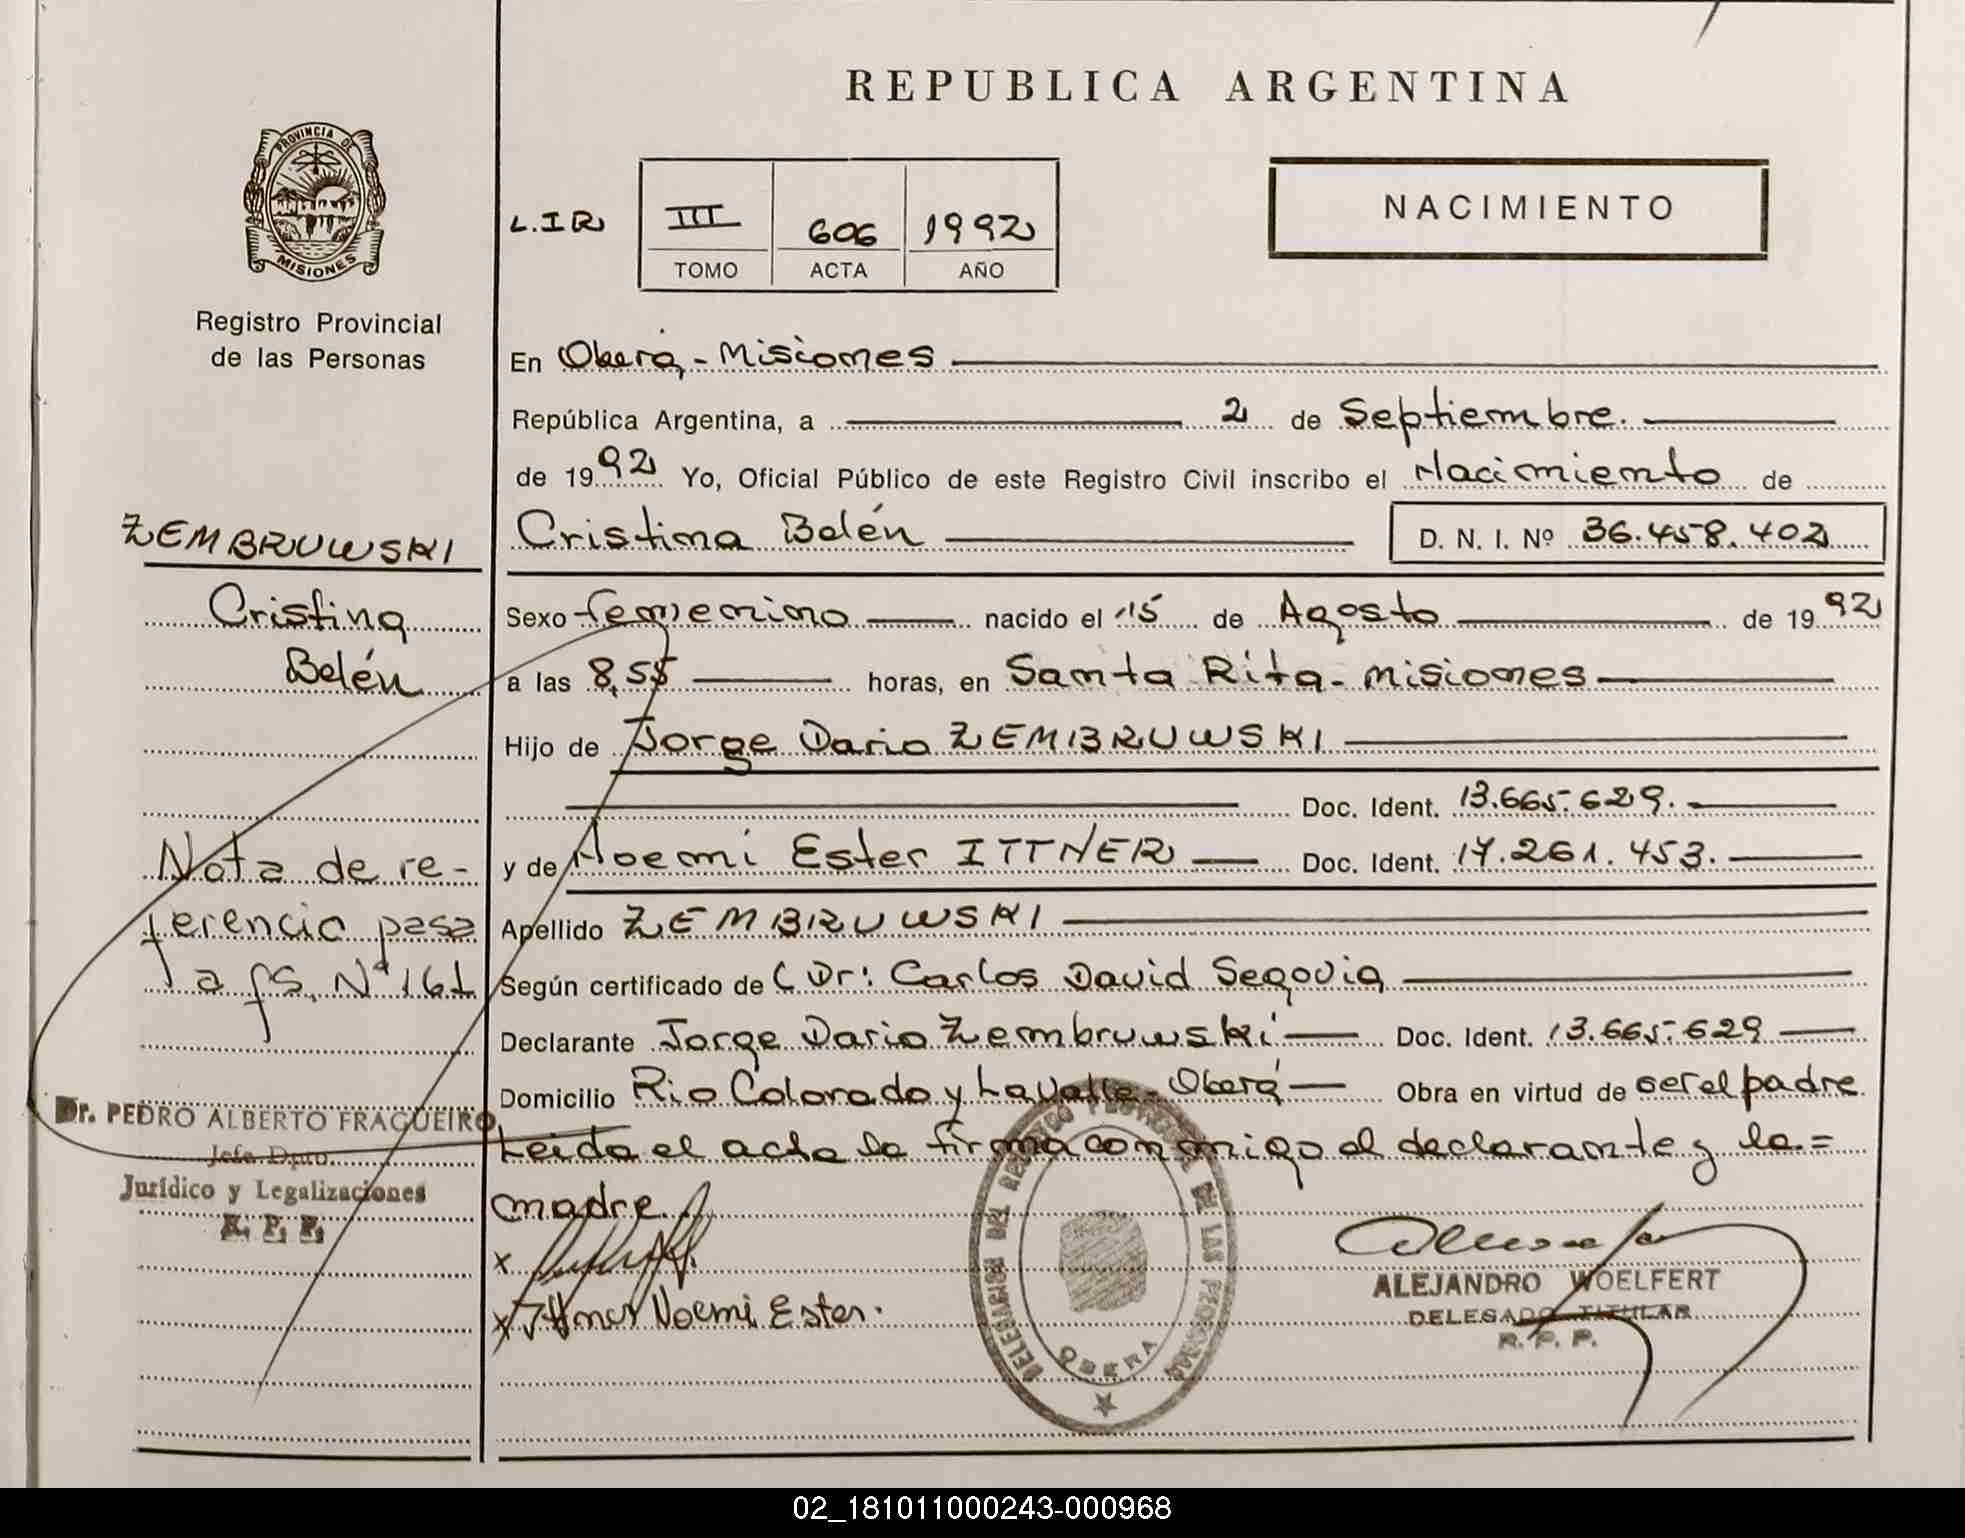 REPUBLICA ARGENTINA
PROVINCIA DE
MISIONES
Registro Provincial
de las Personas
L.IR
III 606 1992
TOMO ACTA AÑO
NACIMIENTO
En Oberá - Misiones
República Argentina, a 2 de Septiembre.
de 1992 Yo, Oficial Público de este Registro Civil inscribo el Nacimiento de
Cristina Belén D. N. I. Nº 36.458.402
Sexo femenino nacido el 15 de Agosto de 1992
a las 8,55 horas, en Santa Rita - Misiones
Hijo de Jorge Dario ZEMBRUWSKI
Doc. Ident. 13.665.629.
y de Noemi Ester ITTNER Doc. Ident. 17.261.453.
Apellido ZEMBRUWSKI
Según certificado de Dr: Carlos David Segovia
Declarante Jorge Dario Zembruwski Doc. Ident. 13.665.629
Domicilio Rio Colorado y Lavalle - Oberá Obra en virtud de ser el padre
Leida el acta la firma conmigo el declarante y la =
madre.
x
x Ittner Noemi Ester.
ZEMBRUWSKI
Cristina
Belén
Nota de re-
ferencia pasa
a fs. Nº 161
Dr. PEDRO ALBERTO FRAGUEIRO
Jefe Dpto.
Jurídico y Legalizaciones
R. P. P.
DELEGACION DEL REGISTRO PROVINCIAL DE LAS PERSONAS
OBERA
ALEJANDRO WOELFERT
DELEGADO TITULAR
R. P. P.
02_181011000243-000968